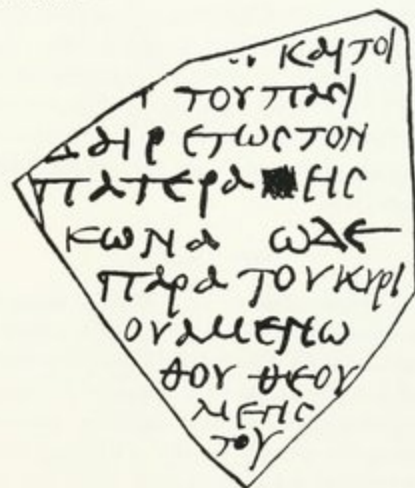 και τοι
του πασι
αιρετως τον
πατερα
κωνα ωδε
παρα του κυρι
ου αμενω
θου θεου
μεγις
του